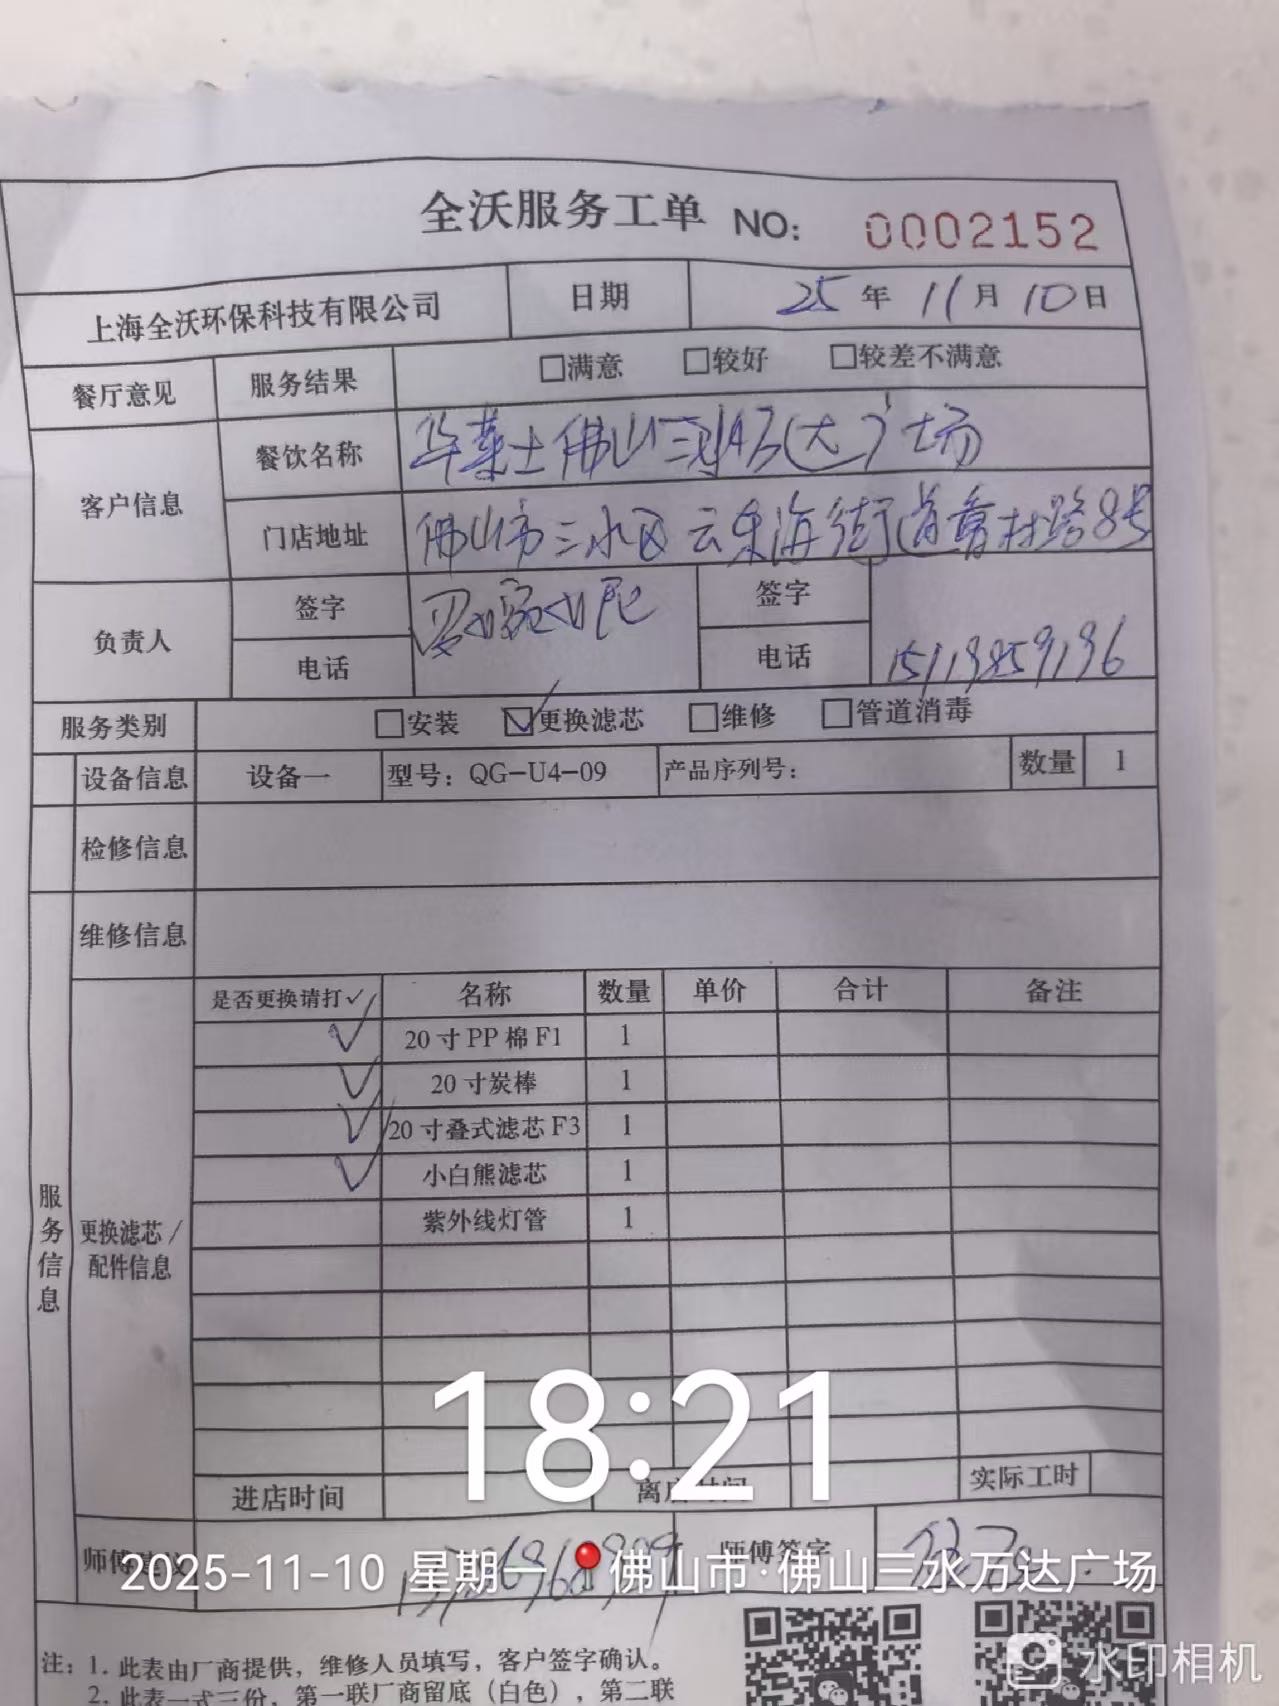 全沃服务工单 NO: 0002152
上海全沃环保科技有限公司 日期 25年11月10日
餐厅意见 服务结果 □满意 □较好 □较差不满意
客户信息 餐饮名称 华莱士佛山三水万达广场
门店地址 佛山市三水区云东海街道 村路8号
负责人 签字 签字
电话 电话 15119859196
服务类别 □安装 ☑更换滤芯 □维修 □管道消毒
设备信息 设备一 型号：QG-U4-09 产品序列号： 数量 1
检修信息
维修信息
是否更换请打✓ 名称 数量 单价 合计 备注
✓ 20寸PP棉F1 1
✓ 20寸炭棒 1
✓ 20寸叠式滤芯F3 1
✓ 小白熊滤芯 1
紫外线灯管 1
服务信息
更换滤芯/
配件信息
18:21
进店时间 离店时间 实际工时
师傅建议 师傅签字
2025-11-10 星期一 佛山市·佛山三水万达广场
注：1. 此表由厂商提供，维修人员填写，客户签字确认。
2. 此表一式三份，第一联厂商留底（白色），第二联
水印相机